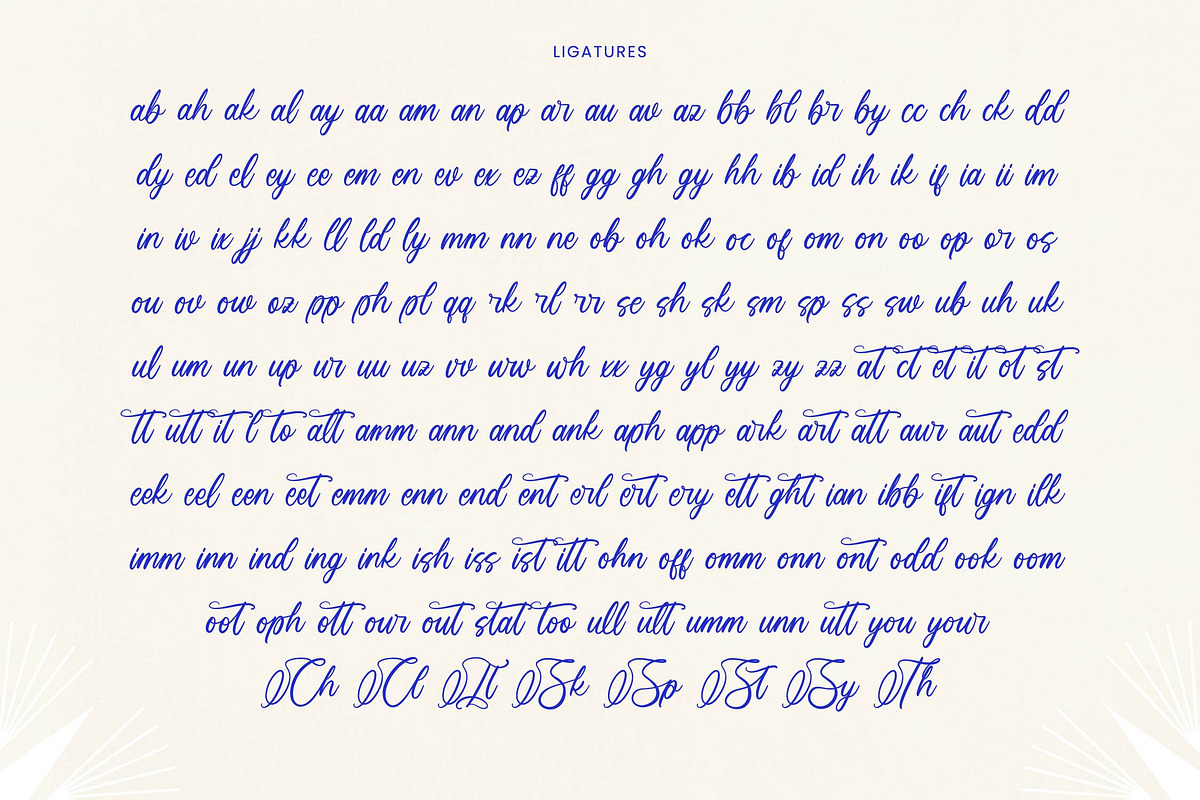 LIGATURES
ab ah ak al ay aa am an ap ar au av az bb bl br by cc ch ck dd
dy ed el ey ee em en ev ex ez ff gg gh gy hh ib id ih ik if ia ii im
in iv ix jj kk ll ld ly mm nn ne ob oh ok oc of om on oo op or os
ou ov ow oz pp ph pl qq rk rl rr se sh sk sm sp ss sw ub uh uk
ul um un up ur uu uz vv wh xx yg yl yy zy zz at ct et it ot st
tt utt it l to alt amm ann and ank aph app ark art att aur aut edd
eek eel een eet emm enn end ent erl ert ery ett ght ian ibb ift ign ilk
imm inn ind ing ink ish iss ist itt ohn off omm onn ont odd ook oom
oot oph ott our out stat too ull ult umm unn utt you your
Ch Cl Lt Sk Sp St Sy Th